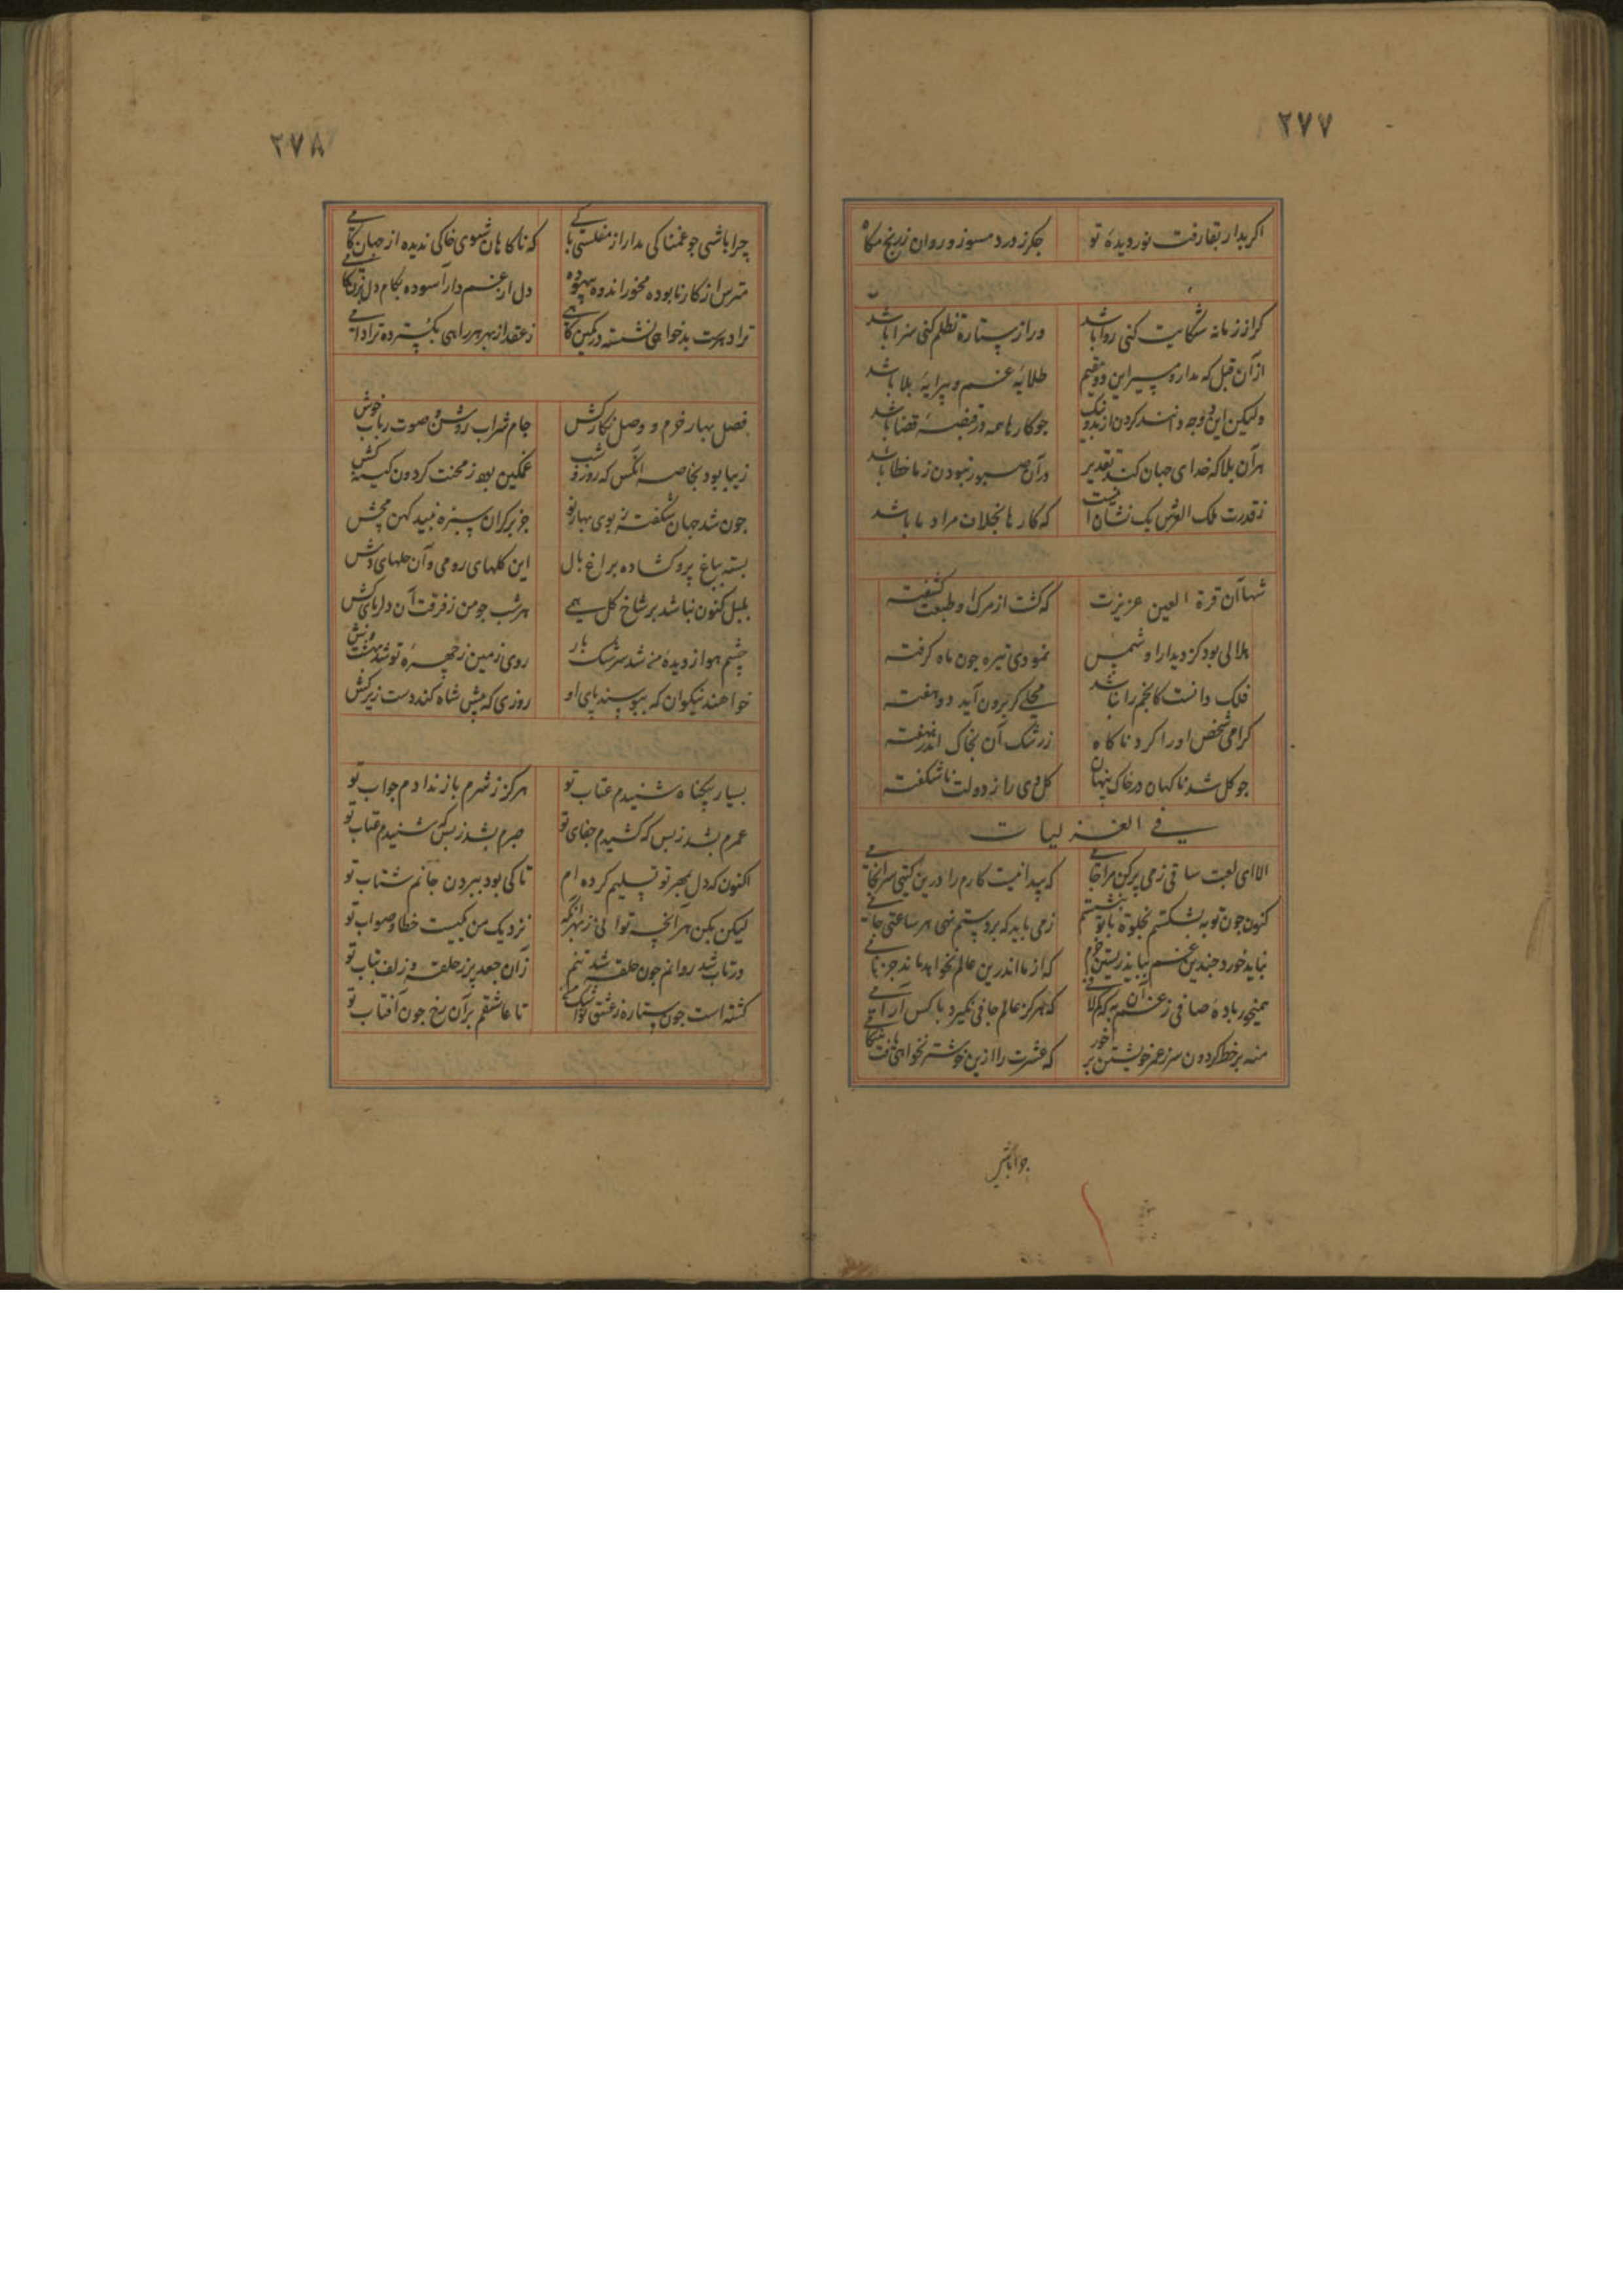 ۲۷۷
اکر بدار بقا رفت نور دیدهٔ تو
جکر ز درد مسوز و روان ز رنج مکاه
کر از زمانه شکایت کنی روا باشد
ور از ستاره تظلم کنی سزا باشد
از آن قبل که مدار و مسیر این دو مقیم
طلایهٔ غم و پیرایهٔ بلا باشد
ولیکن این دو جه دانند کردن از بد و نیک
جو کارها همه در قبضهٔ قضا باشد
هر آن بلا که خدای جهان کند تقدیر
در آن صبور نبودن ز ما خطا باشد
ز قدرت ملک العرش یک نشان اینست
که کارها بخلاف مراد ما باشد
شها آن قرة العین عزیزت
که کشت از مرک او طبعت کشفته
هلالی بود کز دیدار او شمس
نمودی تیره جون ماه کرفته
فلک دانست کانجم را نباشد
محلی کر برون آید دو هفته
کرامی شخص او را کرد ناکاه
ز رشک آن بخاک اندر نهفته
جو کل شد ناکهان در خاک پنهان
کل وی را ز دولت ناشکفته
فی الغزلیات
الا ای لعبت ساقی ز می پر کن مرا جامی
که پیدا نیست کارم را درین کیتی سرانجامی
کنون جون توبه بشکستم بخلوة با تو بنشستم
ز می باید که بر دستم نهی هر ساعتی جامی
نباید خورد جندین غم بباید زیستن خرم
که از ما اندرین عالم نخواهد ماند جز نامی
همیخور بادهٔ صافی ز غم آن به که کم لافی
که هرکز عالم جافی نکیرد با کس آرامی
منه بر خط کردون سر ز عمر خویشتن بر خور
که عشرت را ازین خوشتر نخواهی یافت هنکامی
جرا باشی
۲۷۸
چرا باشی جو غمناکی مدار از مفلسی باکی
که ناکاهان شوی خاکی ندیده از جهان کامی
مترس از کار نابوده مخور اندوه بیهوده
دل از غم دار آسوده بکام دل بزن کامی
ترا دهرست بدخواهی نشسته در کمین کاهی
ز عقد از بهر هر راهی بکسترده ترا دامی
فصل بهار خرم و وصل نکار کش
جام شراب روشن و صوت رباب خوش
زیبا بود بخاصه انکس که روز و شب
غمکین بود ز محنت کردون کینه کش
جون شد جهان شکفته ز بوی بهار نو
جز بر کران سبزه نبید کهن مچش
بسته بباغ پر و کشاده براغ بال
این کلهای رومی و آن حلهای وش
بلبل کنون نباشد بر شاخ کل همی
هر شب جو من ز فرقت آن دلربای کش
چشم هوا ز دیدهٔ من شد سرشک بار
روی زمین ز چهرهٔ تو شد بهشت وش
خواهند نیکوان که ببوسند پای او
روزی که پیش شاه کند دست زیر کش
بسیار بیکناه شنیدم عتاب تو
هرکز ز شرم باز ندادم جواب تو
عمرم بشد ز بس که کشیدم جفای تو
صبرم بشد ز بس که شنیدم عتاب تو
اکنون که دل بمهر تو تسلیم کرده ام
تا کی بود ببردن جانم شتاب تو
لیکن بکن هر آنچه توانی ز بهر آنکه
نزدیک من یکیست خطا و صواب تو
در تاب شد روانم جون حلقه شد تنم
زان جعد پر ز حلقه و زلف بتاب تو
کشته است جون ستاره ز عشق تو اشک من
تا عاشقم بر آن رخ جون آفتاب تو